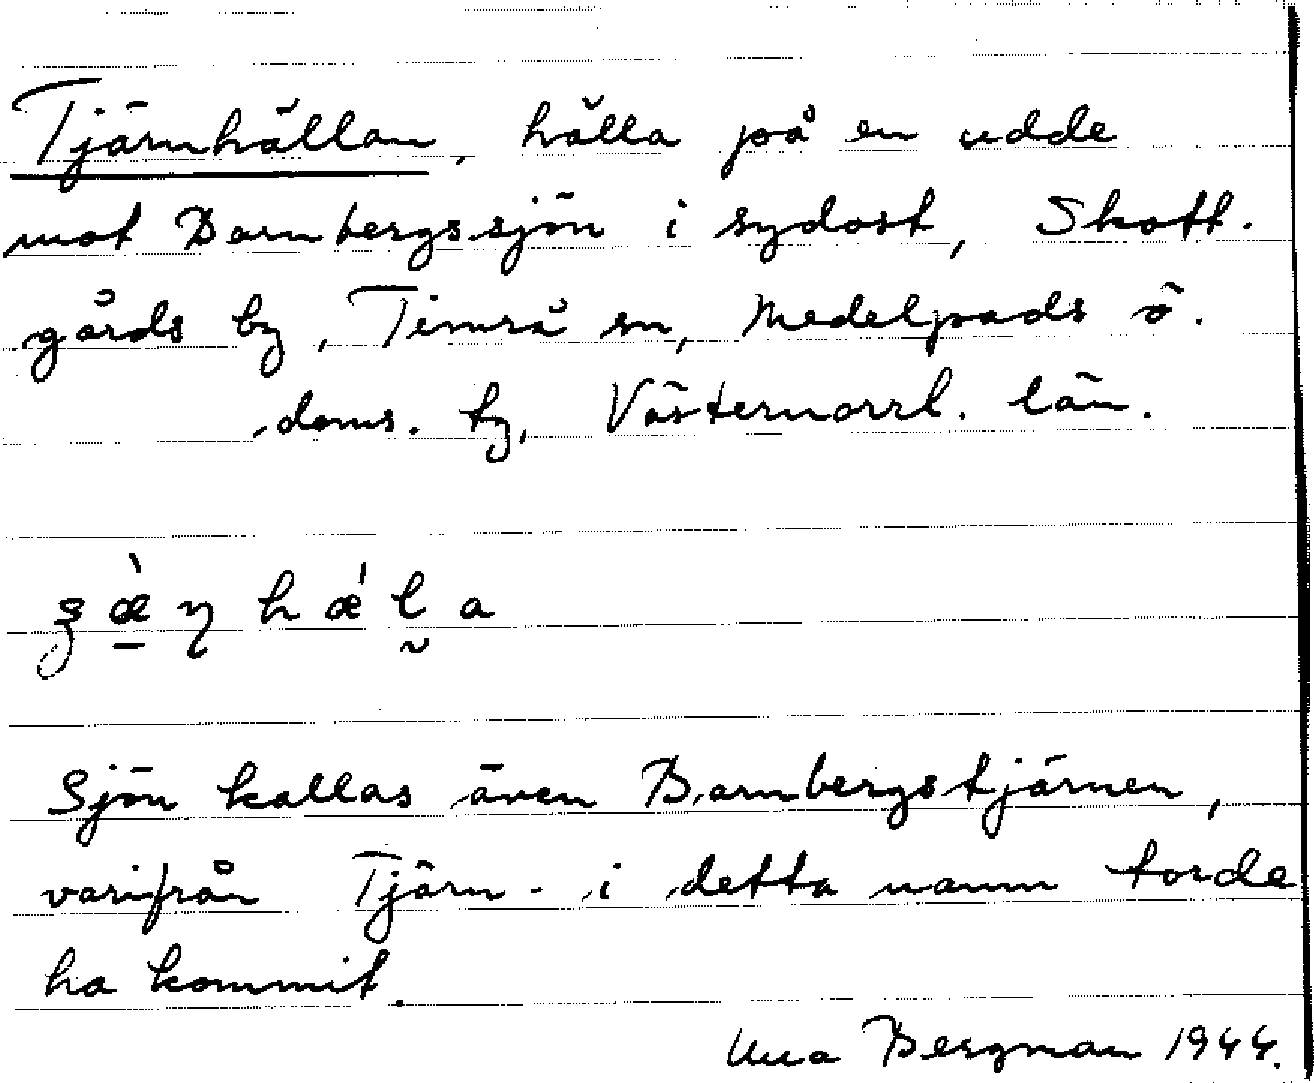 Tjärnhällan, hälla på en udde
mot Barnbergssjön i sydost, Skott-
gårds by, Timrå sn, Medelpads ö.
doms. by, Västernorrl. län.
hǽla
Sjön kallas även Barnbergstjärnen,
varifrån Tjärn- i detta namn torde
ha kommit.
Una Bergman 1944.